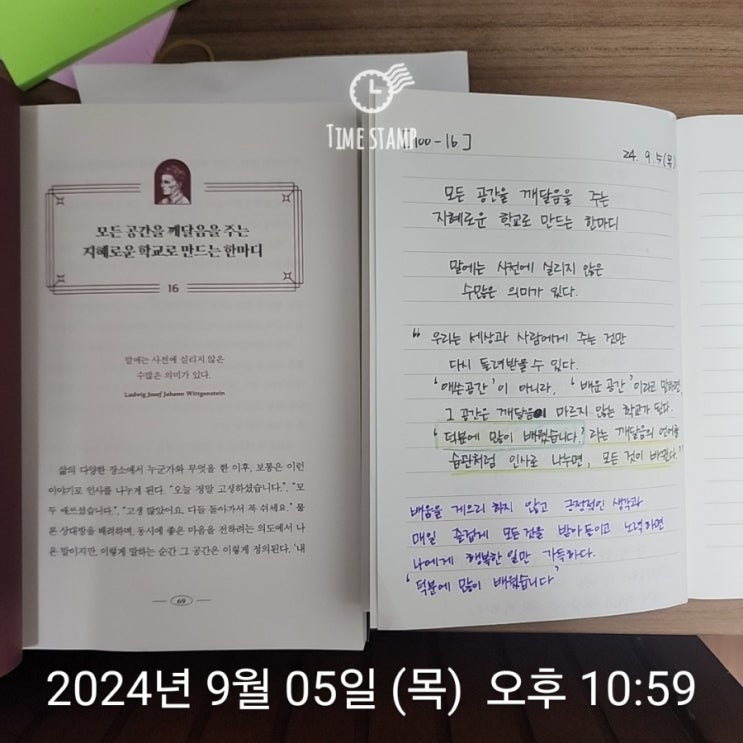 TIME STAMP
모든 공간을 깨달음을 주는
지혜로운 학교로 만드는 한마디
16
말에는 사전에 실리지 않은
수많은 의미가 있다.
Ludwig Josef Johann Wittgenstein
삶의 다양한 장소에서 누군가와 무엇을 한 이후, 보통은 이런
이야기로 인사를 나누게 된다. "오늘 정말 고생하셨습니다.", "모
두 애쓰셨습니다.", "고생 많았어요. 다들 돌아가서 푹 쉬세요." 물
론 상대방을 배려하며, 동시에 좋은 마음을 전하려는 의도에서 나
온 말이지만, 이렇게 말하는 순간 그 공간은 이렇게 정의된다. '내
69
100-16]
24. 9. 5(목)
모든 공간을 깨달음을 주는
지혜로운 학교로 만드는 한마디
말에는 사전에 실리지 않은
수많은 의미가 있다.
" 우리는 세상과 사람에게 주는 것만
다시 돌려받을 수 있다.
'애쓴공간'이 아니라, '배운 공간'이라고 말하면,
그 공간은 깨달음이 마르지 않는 학교가 된다.
'덕분에 많이 배웠습니다.'라는 깨달음의 언어를
습관처럼 인사로 나누면, 모든 것이 바뀐다."
배움을 게으리 하지 않고 긍정적인 생각과
매일 즐겁게 모든것을 받아들이고 노력하면
나에게 행복한 일만 가득하다.
'덕분에 많이 배웠습니다'
2024년 9월 05일 (목) 오후 10:59